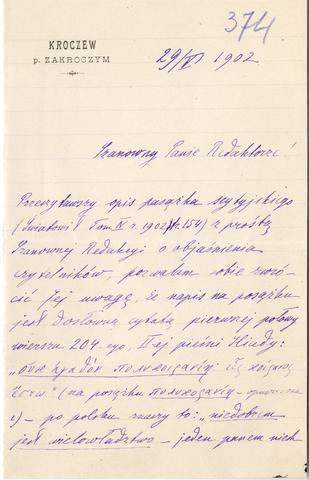 374
KROCZEW
p. ZAKROCZYM
29/VI 1902
Szanowny Panie Redaktorze!
Przeczytawszy opis posążka scytyjskiego
(Światowit Tom IV r. 1902 str. 154) z prośbą
Szanownej Redakcyi o objaśnienia
czytelników, pozwalam sobie zwró-
cić Jej uwagę, że napis na posążku
jest dosłowną cytatą pierwszej połowy
wiersza 204. ego, II ej pieśni Iliady:
„οὐκ ἀγαθὸν πολυκοιρανίη· εἷς κοίρανος
ἔστω" (na posążku πολυκοιρανιη –
ι) – po polsku znaczy to: „niedobrem
jest wielowładztwo – jeden panem niech